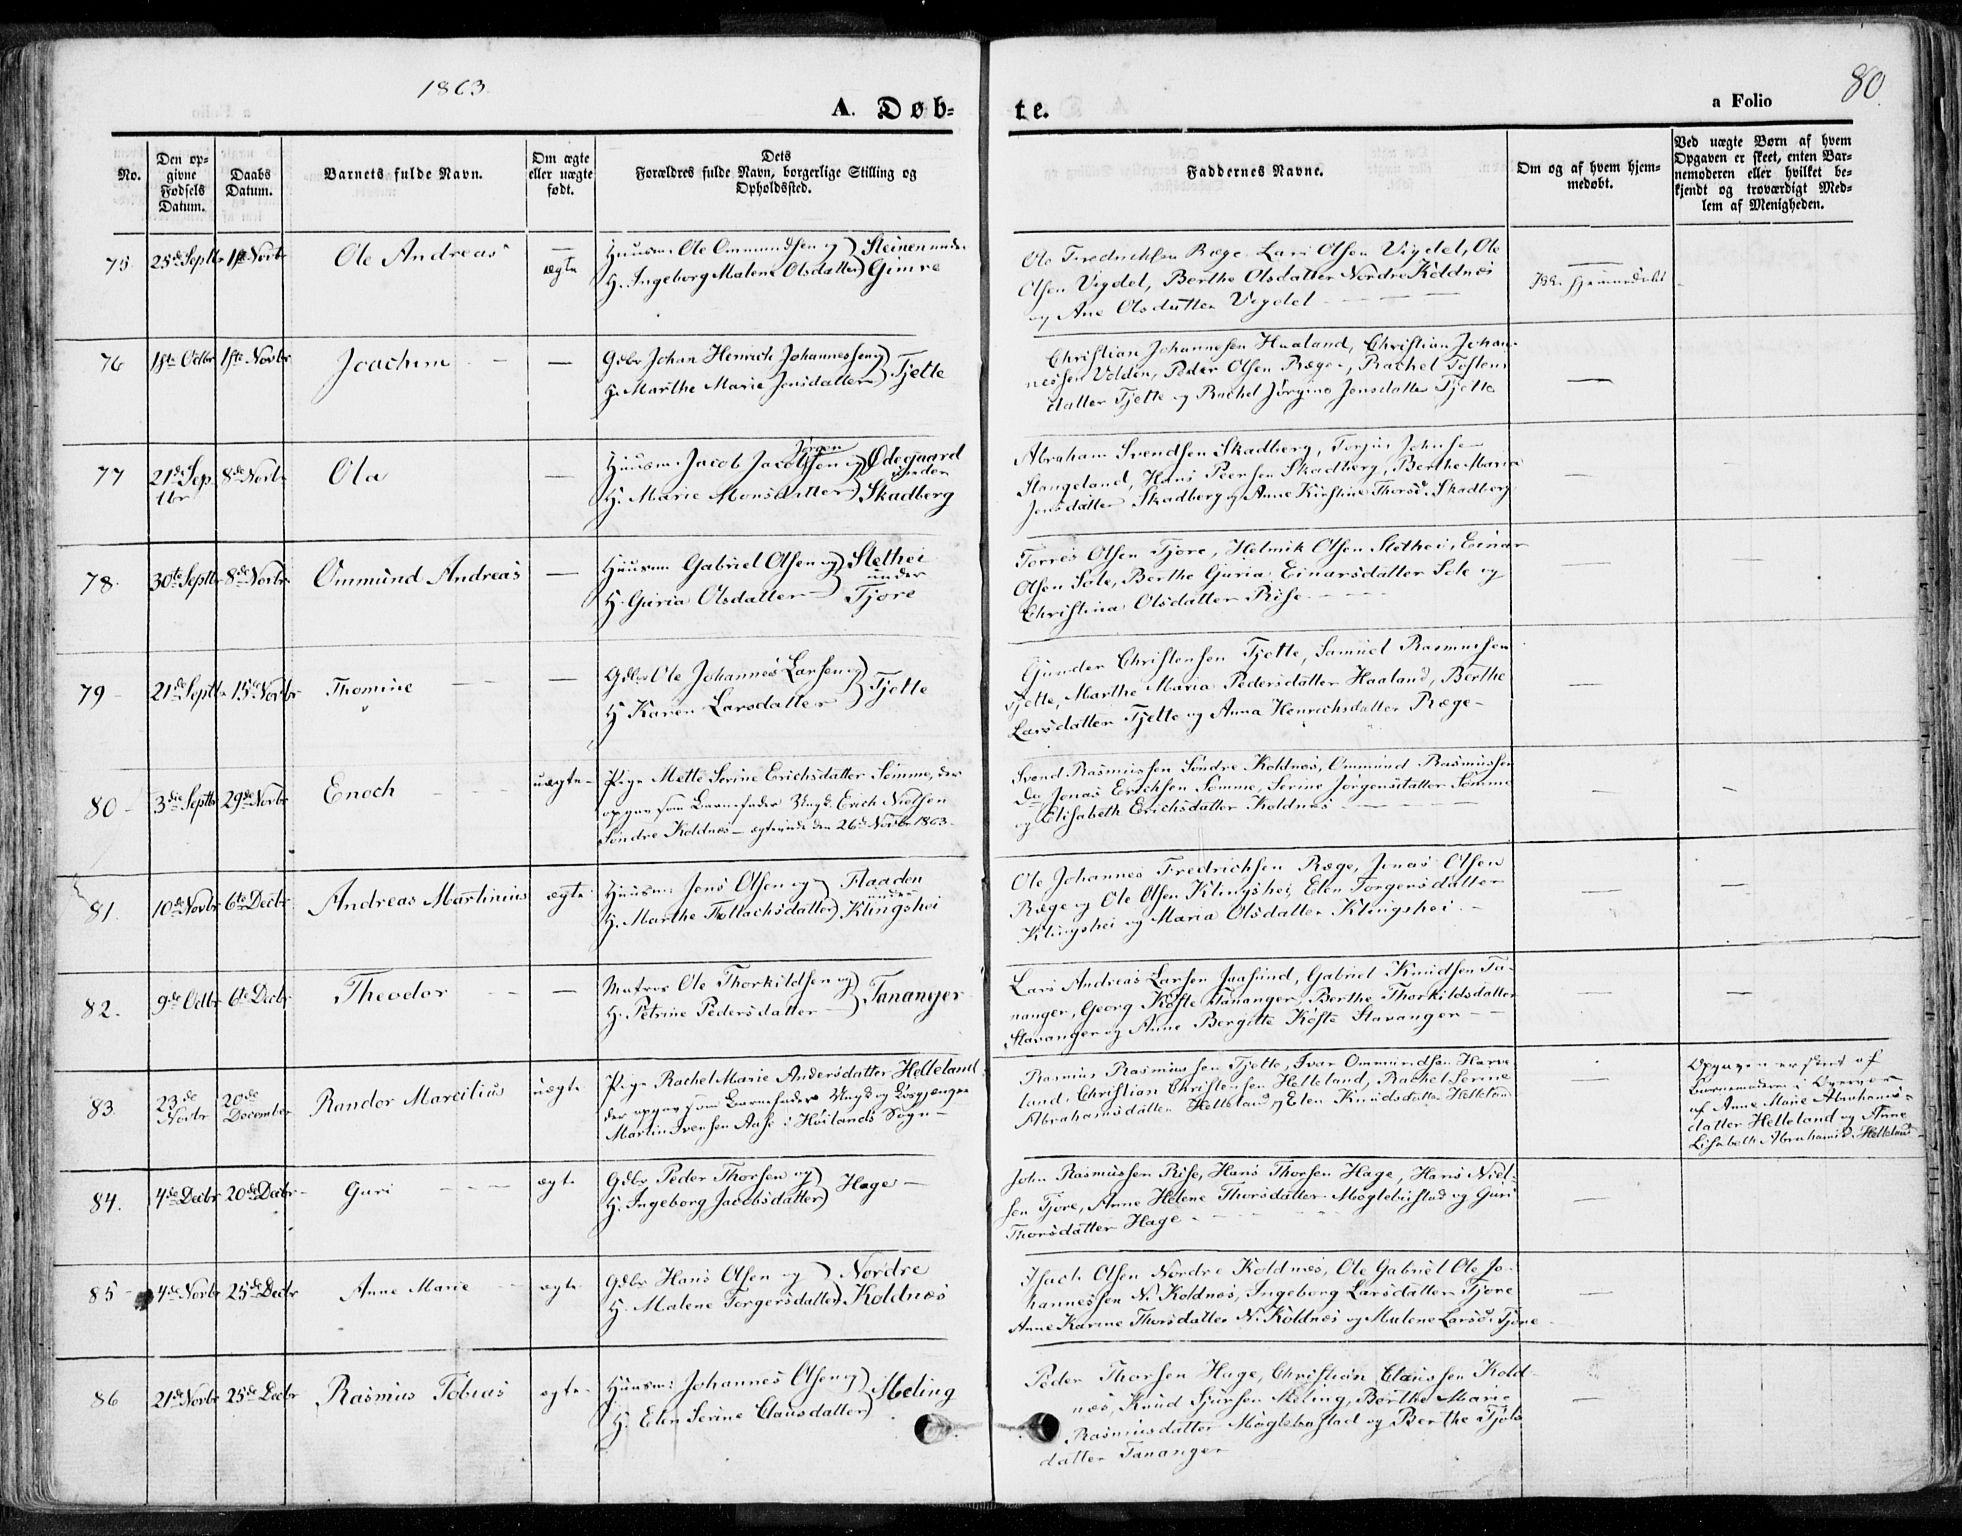 1863.
A. Døb-
te.
a Folio
80.
No.
Den op-
givne
Fødsels
Datum.
Daabs
Datum.
Barnets fulde Navn.
Om ægte
eller uægte
født.
Dets
Forældres fulde Navn, borgerlige Stilling og
Opholdssted.
Faddernes Navne.
Om og af hvem hjem-
medøbt.
Ved uægte Børn af hvem
Opgaven er skeet, enten Bar-
nemoderen eller hvilket be-
kjendt og troværdigt Med-
lem af Menigheden.
75 25de Septbr 1ste Novbr Ole Andreas ægte
Huusm. Ole Ommundsen og Steinen under
H. Ingeborg Malene Olsdatter Gimre
Ole Fredricksen Ræge, Lars Olsen Vigdel, Ole
Olsen Vigdel, Berthe Olsdatter Nordre Koldnæs
og Ane Olsdatter Vigdel
Ikke hjemmedøbt
76 18te Octbr 1ste Novbr Joachim —
Gdbr Johan Henrich Johannessen og
H. Marthe Marie Jonsdatter Tjette
Christian Johannesen Haaland, Christian Johan-
nessen Volden, Peder Olsen Ræge, Rachel Tostens
datter Tjette og Rachel Jørgine Jensdatter Tjette
—
77 21de Sep 8de Novbr Ola —
tbr
Huusm. Jacob Jacobsen og Ødegaard
under
H. Marie Monsdatter Skadberg
Abraham Svendsen Skadberg, Torjus Johnsen
Stangeland, Hans Peersen Skadberg, Berthe Maria
Jensdatter Skadberg og Anne Kirstine Thorsd. Skadberg
—
78. 30te Septbr 8de Novbr Ommund Andreas —
Huusm. Gabriel Olsen og Slethei
under
H. Guria Olsdatter Tjore
Torres Olsen Tjore, Helmik Olsen Slethei, Einar
Olsen Sole, Berthe Guria Einarsdatter Sole og
Christina Olsdatter Risse
—
79 21de Septbr 15de Novbr Thomine —
Gdbr Ole Johannes Larsen og
H Karen Larsdatter Tjette
Gunder Christensen Tjette, Samuel Rasmussen
Tjette, Marthe Maria Pedersdatter Haaland, Berthe
Larsdatter Tjette og Anna Henrichsdatter Ræge
—
80 3die Septbr 29de Novbr Enoch uægte
Pige Mette Serine Erichsdatter Sømme, der
opgav som Barnefader Ungk. Erich Nielsen
Søndre Koldnæs — ægteviede den 26de Novbr 1863.
Svend Rasmussen Søndre Koldnæs, Ommund Rasmussen
Do Jonas Erichsen Sømme, Serine Jørgensdatter Sømme
og Elisabeth Erichsdatter Koldnæs
—
81. 10de Novbr 6te Decbr Andreas Martinius ægte
Huusm. Jens Olsen og Flaaden
under
H. Marthe Tollachsdatter Klingshei
Ole Johannes Fredrichsen Ræge, Jonas Olsen
Ræge og Ole Olsen Klingshei, Elen Torgersdatter
Klingshei og Maria Olsdatter Klingshei
—
82. 9de Octbr 6te Decbr Theodor —
Matros Ole Thorkildsen og
H. Petrine Pedersdatter Tananger
Lars Andreas Larsen Jaasund, Gabriel Knudsen Ta-
nanger, Georg Køste Tananger, Berthe Thorkildsdatter
Stavanger og Anne Bergitte Køste Stavanger
—
83. 23de 20de Randor Marcilius uægte
Novbr December
Pige Rachel Marie Andersdatter Helleland
der opgav som Barnefader Ungk. og Losgjænger
Martin Iversen Aase i Høilands Sogn
Rasmus Rasmussen Tjette, Ivar Ommundsen Harve
land, Christian Christensen Helleland, Rachel Serine
Abrahamsdatter Helleland og Elen Knudsdatter Helleland
Opgaven er skeet af
Barnemoderen i Overvær
af Anne Marie Abrahams-
datter Helleland og Anne
Lisabeth Abrahamsd. Helleland
84. 4de Decbr 20de Decbr Guri ægte
Gdbr Peder Thorsen og
H. Ingeborg Jacobsdatter Hage
John Rasmussen Risse, Hans Thorsen Hage, Hans Niel-
sen Tjore, Anne Helene Thorsdatter Møglebustad og Guri
Thorsdatter Hage
—
85 4de Novbr 25de Decbr Anne Marie ægte
Gdbr Hans Olsen og Nordre
H. Malene Torgersdatter Koldnæs
Isach Olsen Nordre Koldnæs, Ole Gabriel Ole Jo-
hannessen N. Koldnæs, Ingeborg Larsdatter Tjore
Anne Karine Thorsdatter N. Koldnæs og Malene Larsd. Tjore
—
86 21de Novbr 25de Decbr Rasmus Tobias ægte
Huusm. Johannes Olsen og
H. Elen Serine Clausdatter Meling
Peder Thorsen Hage, Christian Claussen Kold-
næs, Knud Sjursen Meling, Berthe Marie
Rasmusdatter Møglebustad og Berthe Tjøls
datter Tananger
—